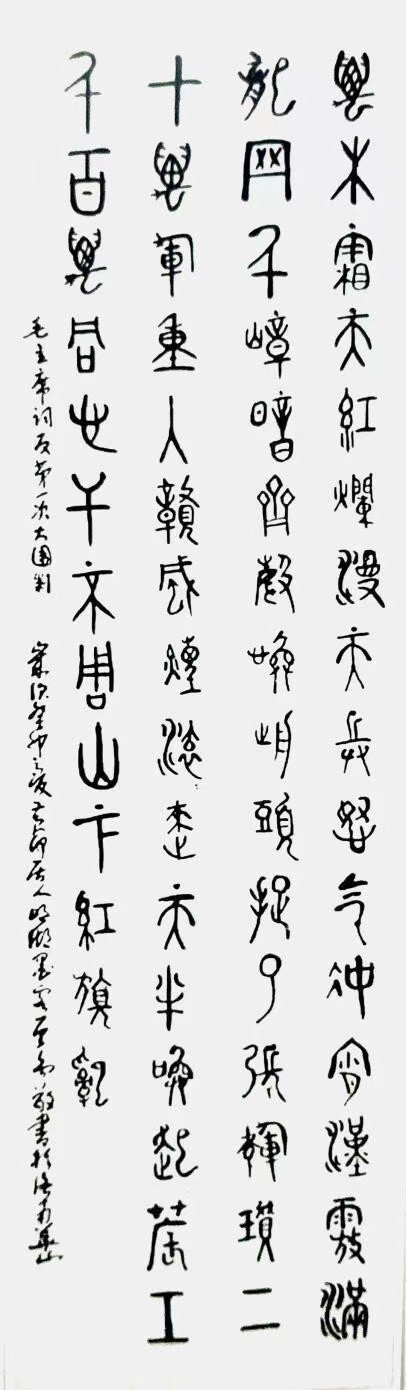 萬木霜天紅爛漫天兵怒氣沖霄漢霧滿
龍岡千嶂暗齊聲喚前頭捉了張輝瓚二
十萬軍重入贛風煙滾:來天半喚起農工
千百萬同心干不周山下紅旗亂
毛主席詞反第一次大圍剿 歲次癸卯之夏 居人明湖墨客 敬書於濟南華山